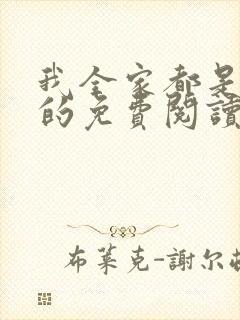 我全家都是
的免費閱讀
布萊克-謝尔